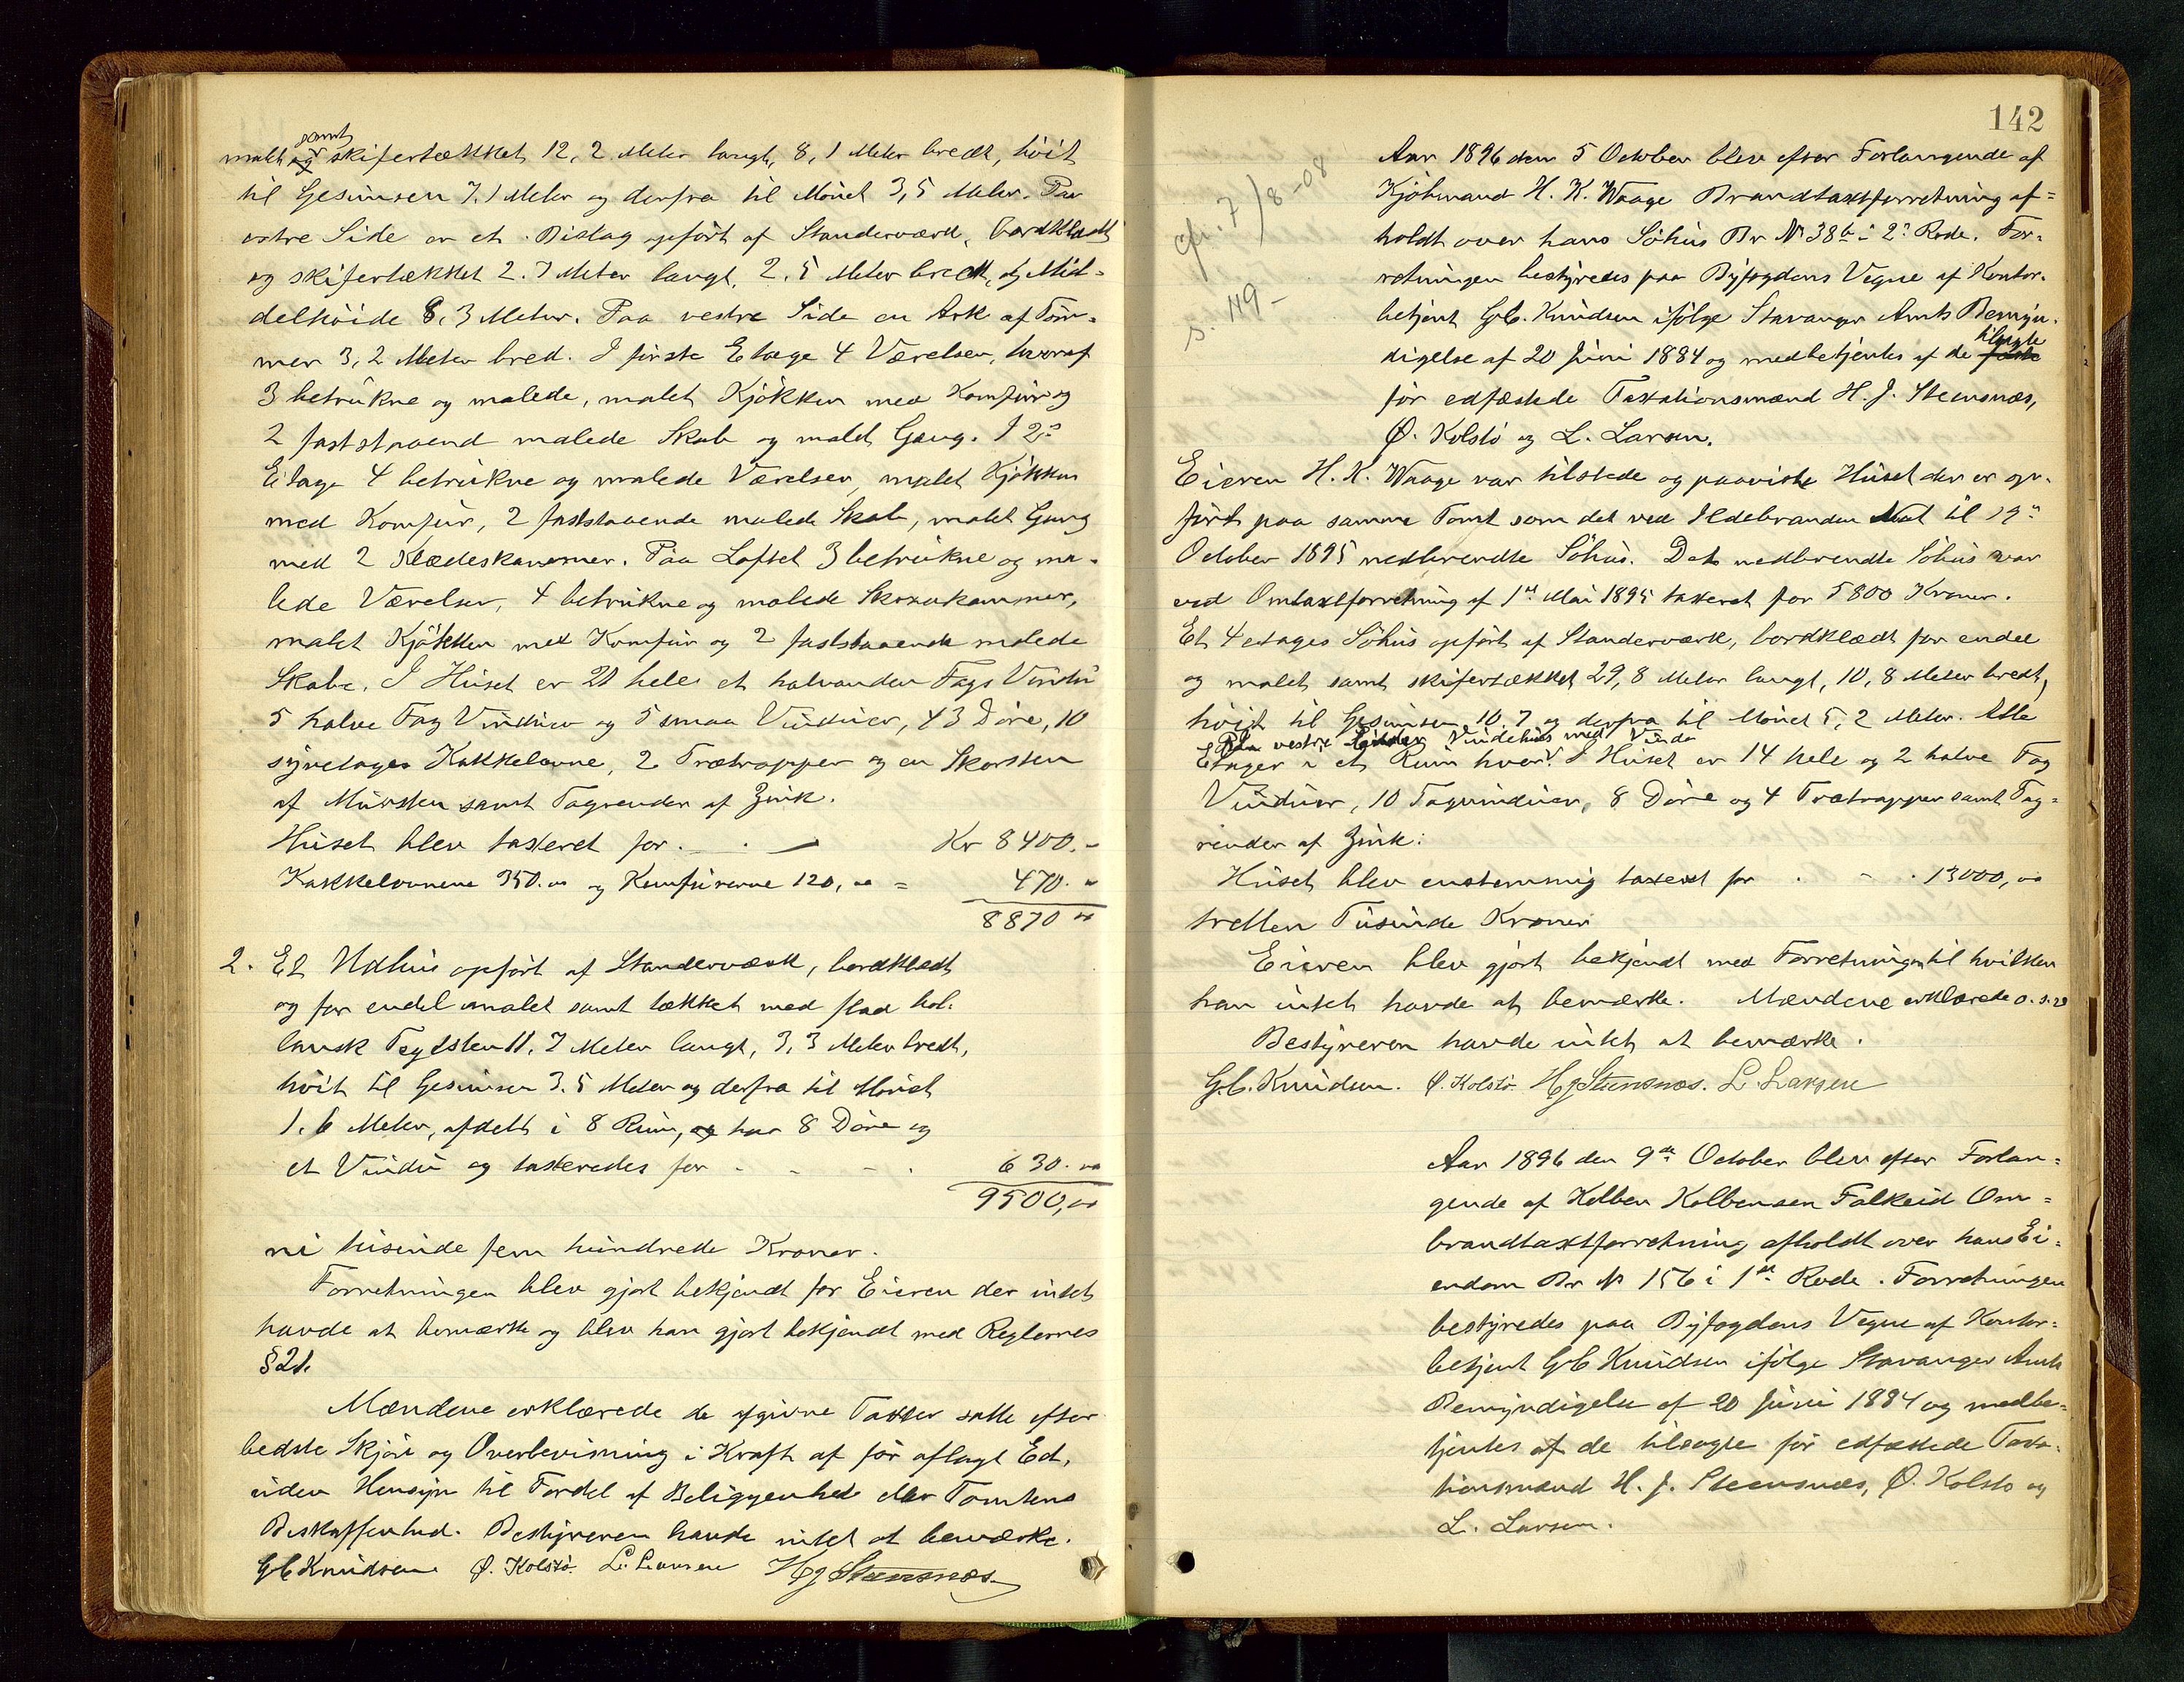 malet og samt skifertækket 12,2 Meter langt, 8,1 Meter bredt, höit
til Gesimsen 7.1 Meter og derfra til Mönet 3,5 Meter. Paa
østre Side er et Bislag opfört af Standerværk, bordklædt
og skifertækket 2.7 Meter langt, 2.5 Meter bredt, og Mid-
delhöide 8,3 Meter. Paa vestre Side en Ark af Töm-
mer 3,2 Meter bred. I förste Etage 4 Værelser, hvoraf
3 betrukne og malede, malet Kjökken med Komfur og
2 faststaaend malede Skab og malet Gang. I 2den
Etage 4 betrukne og malede Værelser, malet Kjökken
med Komfur, 2 faststaaende malede Skab, malet Gang
med 2 Klædeskammer. Paa Loftet 3 betrukne og ma-
lede Værelser, 4 betrukne og malede Skraakammer,
malet Kjökken med Komfur og 2 faststaaende malede
Skabe. I Huset er 21 hele et halvanden Fags Vindu
5 halve Fag Vinduer og 5 smaa Vinduer, 43 Döre, 10
syvetages Kakkelovne, 2 Trætrapper og en Skorsten
af Mursten samt Tagrender af Zink.
Huset blev taxeret for . . — Kr 8400.-
Kakkelovnene 350.00 og Komfurerne 120,00 = 470.00
8870 00
2. Et Udhus opfört af Standerværk, bordklædt
og for endel malet samt tækket med flad hol-
landsk Teglsten 11,7 Meter langt, 3,3 Meter bredt,
höit til Gesimsen 3.5 Meter og derfra til Mönet
1.6 Meter, afdelt i 8 Rum, og har 8 Döre og
et Vindu og taxeredes for - - - . 630.00
9500,00
ni tusinde fem hundrede Kroner.
Forretningen blev gjort bekjendt for Eieren der intet
havde at bemærke og blev han gjort bekjendt med Reglernes
§ 21.
Mændene erklærede de afgivne Taxter satte efter
bedste Skjön og Overbevisning i Kraft af för aflagt Ed,
uden Hensyn til Fordel af Beliggenhed eller Tomtens
Beskaffenhed. Bestyreren havde intet at bemærke.
G.C. Knudsen Ø. Kolstö. L. Larsen H J Steensnæs.
142
cfr. 7/8-08
s. 119-
Aar 1896 den 5 October blev efter Forlangende af
Kjöbmand H. K. Waage Brandtaxtforretning af-
holdt over hans Söhus Br No 38b i 2den Rode. For-
retningen bestyredes paa Byfogdens Vegne af Kontor-
betjent G.C. Knudsen ifölge Stavanger Amts Bemyn-
digelse af 20 Juni 1884 og medbetjentes af de faste tilsagte
för edfæstede Taxtationsmænd H. J. Steensnæs,
Ø. Kolstö og L. Larsen.
Eieren H. K. Waage var tilstede og paaviste Huset der er op-
fört paa samme Tomt som det ved Ildebranden Nat til 19de
October 1895 nedbrendte Söhus. Det nedbrendte Söhus var
ved Omtaxtforretning af 1st Mai 1895 taxeret for 5800 Kroner.
Et 4 etages Söhus opfört af Standerværk, bordklædt for endel
og malet samt skifertækket 29,8 Meter langt, 10,8 Meter bredt,
höit til Gesimsen 10.7 og derfra til Mönet 5,2 Meter. Alle
Paa vestre Vindehus med Vinde
Etager i et Rum hver. I Huset er 14 hele og 2 halve Fag
Vinduer, 10 Tagvinduer, 8 Döre og 4 Trætrapper samt Tag-
render af Zink.
Huset blev enstemmig taxeret for . - . 13000,00
tretten Tusinde Kroner
Eieren blev gjort bekjendt med Forretningen til hvilken
han intet havde at bemærke. Mændene erklærede o.s.v
Bestyreren havde intet at bemærke.
G.C. Knudsen. Ø. Kolstö. H J Steensnæs. L. Larsen
Aar 1896 den 9de October blev efter Forlan-
gende af Kolben Kolbensen Falkeid Om-
brandtaxtforretning afholdt over hans Ei-
endom Br No 156 i 1ste Rode. Forretningen
bestyredes paa Byfogdens Vegne af Kontor-
betjent G.C. Knudsen ifölge Stavanger Amts
Bemyndigelse af 20 Juni 1884 og medbe-
tjentes af de tilsagte för edfæstede Taxa-
tionsmænd H. J. Steensnæs, Ø. Kolsto og
L. Larsen.